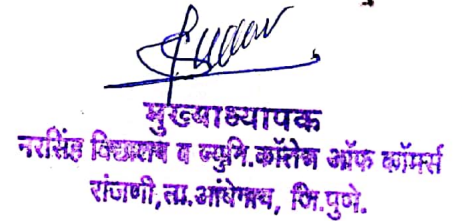 मुख्याध्यापक
नरसिंह विद्यालय व ज्युनि.कॉलेज ऑफ कॉमर्स
रांजणी,ता.आंबेगाव, जि.पुणे.